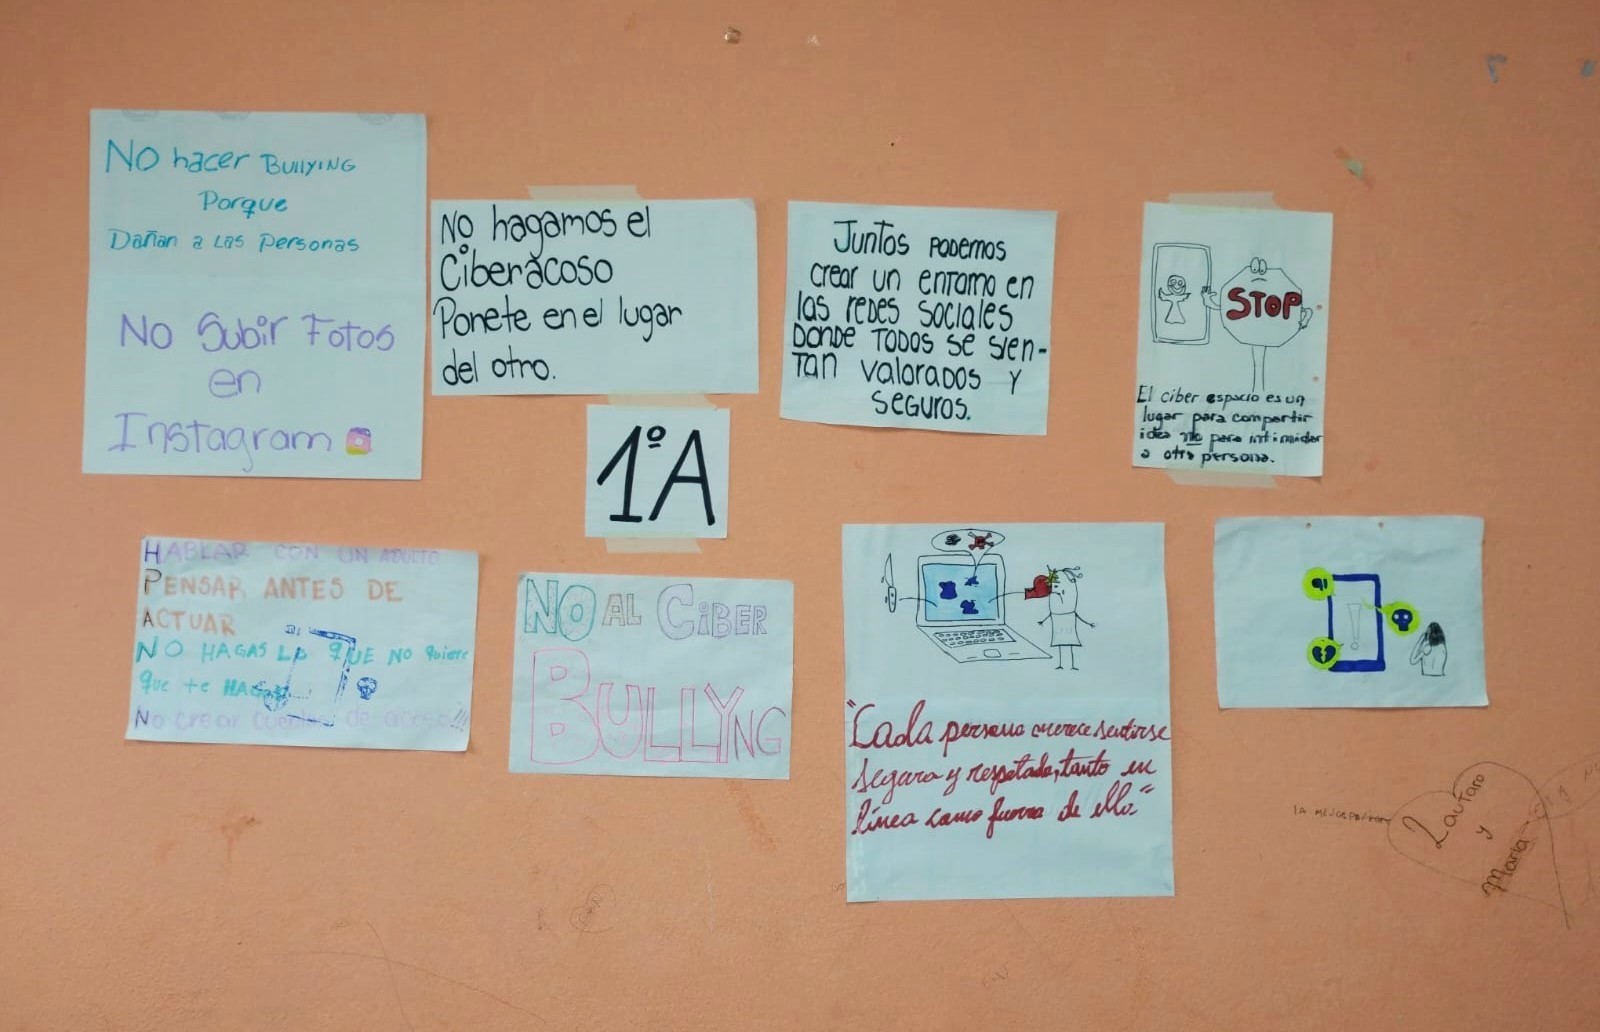 NO hacer BULLYING
Porque
Dañan a las Personas
NO Subir Fotos
en
Instagram
No hagamos el
Ciberacoso
Ponete en el lugar
del otro.
Juntos podemos
crear un entorno en
las redes sociales
DONDE TODOS SE SIEN-
TAN valorados y
SEGUROS.
STOP
El ciber espacio es un
lugar para compartir
idea no para intimidar
a otra persona.
1ºA
HABLAR CON UN ADULTO
PENSAR ANTES DE
ACTUAR
NO HAGAS LO QUE NO quiere
que te HAGAN
No crear cuentas de acoso!!!
NO AL CIBER
BULLYNG
"Cada persona merece sentirse
segura y respetada, tanto en
línea como fuera de ella."
!
LA MEJOR
Lautaro
y
Maria